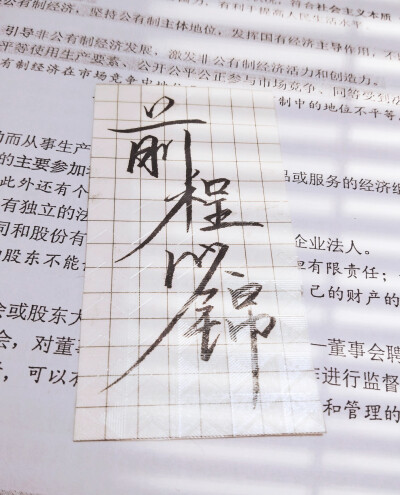 公有制经济，坚持公有制主体地位，发挥国有经济主导作用，不
引导非公有制经济发展，激发非公有制经济活力和创造力。
平等使用生产要素、公开公平公正参与市场竞争、同等受到
有制经济在市场竞争中
制中的地位不平等
前程似锦
而从事生产
品或服务的经济组
的主要参加
此外还有个
有独立的法
企业法人。
司和股份有
有限责任；
股东不能
己的财产的
会或股东大
会，对董事
一董事会聘
可以
进行监督
和管理的